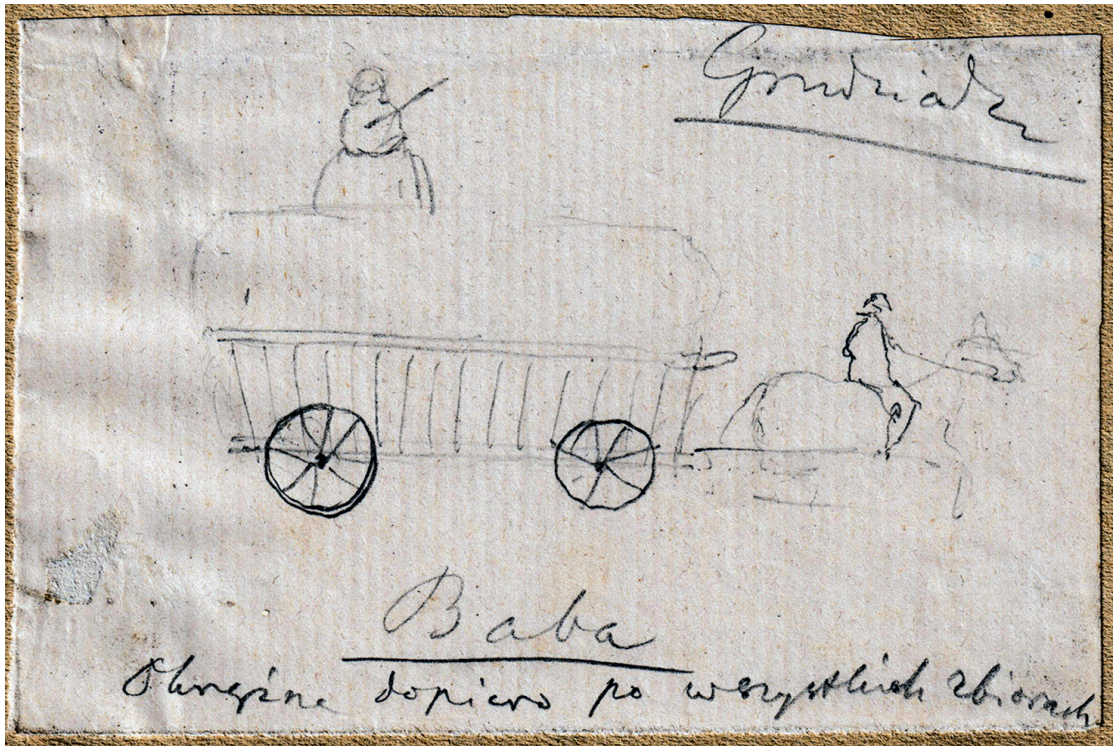 Grudziądz
Baba
Okrężne dopiero po wszystkich zbiorach